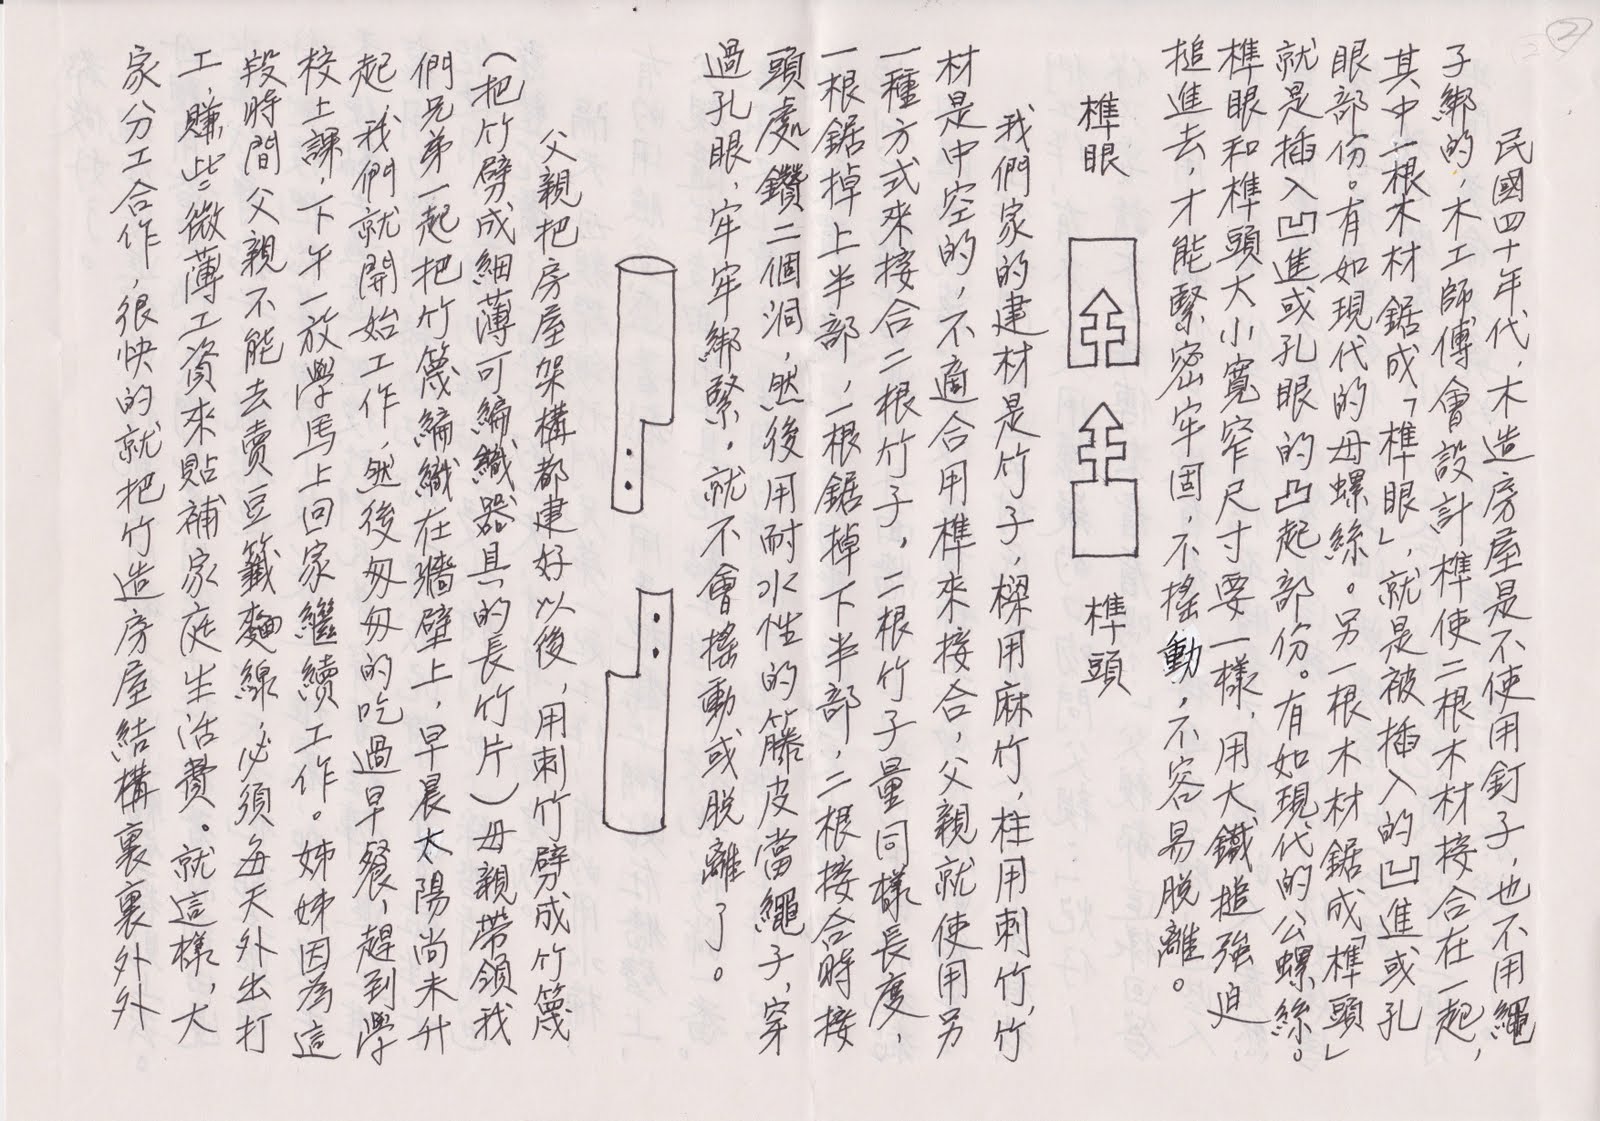 2
民國四十年代，木造房屋是不使用釘子，也不用繩
子綁的，木工師傅會設計榫使二根木材接合在一起，
其中一根木材鋸成「榫眼」，就是被插入的凹進或孔
眼部份。有如現代的母螺絲。另一根木材鋸成「榫頭」
就是插入凹進或孔眼的凸起部份。有如現代的公螺絲。
榫眼和榫頭大小寬窄尺寸要一樣，用大鐵搥強迫
搥進去，才能緊密牢固，不搖動，不容易脫離。
榫眼
榫頭
我們家的建材是竹子，樑用麻竹，柱用刺竹，竹
材是中空的，不適合用榫來接合，父親就使用另
一種方式來接合二根竹子，二根竹子量同樣長度，
一根鋸掉上半部，一根鋸掉下半部，二根接合時接
頭處鑽二個洞，然後用耐水性的籐皮當繩子，穿
過孔眼，牢牢綁緊，就不會搖動或脫離了。
父親把房屋架構都建好以後，用刺竹劈成竹篾
（把竹劈成細薄可編織器具的長竹片）母親帶領我
們兄弟一起把竹篾編織在牆壁上，早晨太陽尚未升
起，我們就開始工作，然後匆匆的吃過早餐，趕到學
校上課，下午一放學馬上回家繼續工作。姊姊因為這
段時間父親不能去賣豆籤麵線，必須每天外出打
工，賺些微薄工資來貼補家庭生活費。就這樣，大
家分工合作，很快的就把竹造房屋結構裏裏外外